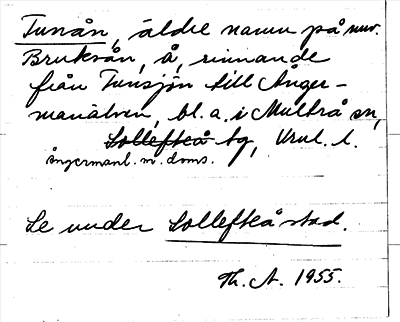 Tunån, äldre namn på nuv.
Bruksån, å, rinnande
från Tunsjön till Ånger-
manälven, bl. a. i Multrå sn,
Sollefteå tg, Vrnl. l.
ångermanl. m. doms.
Se under Sollefteå stad.
Th. A. 1955.